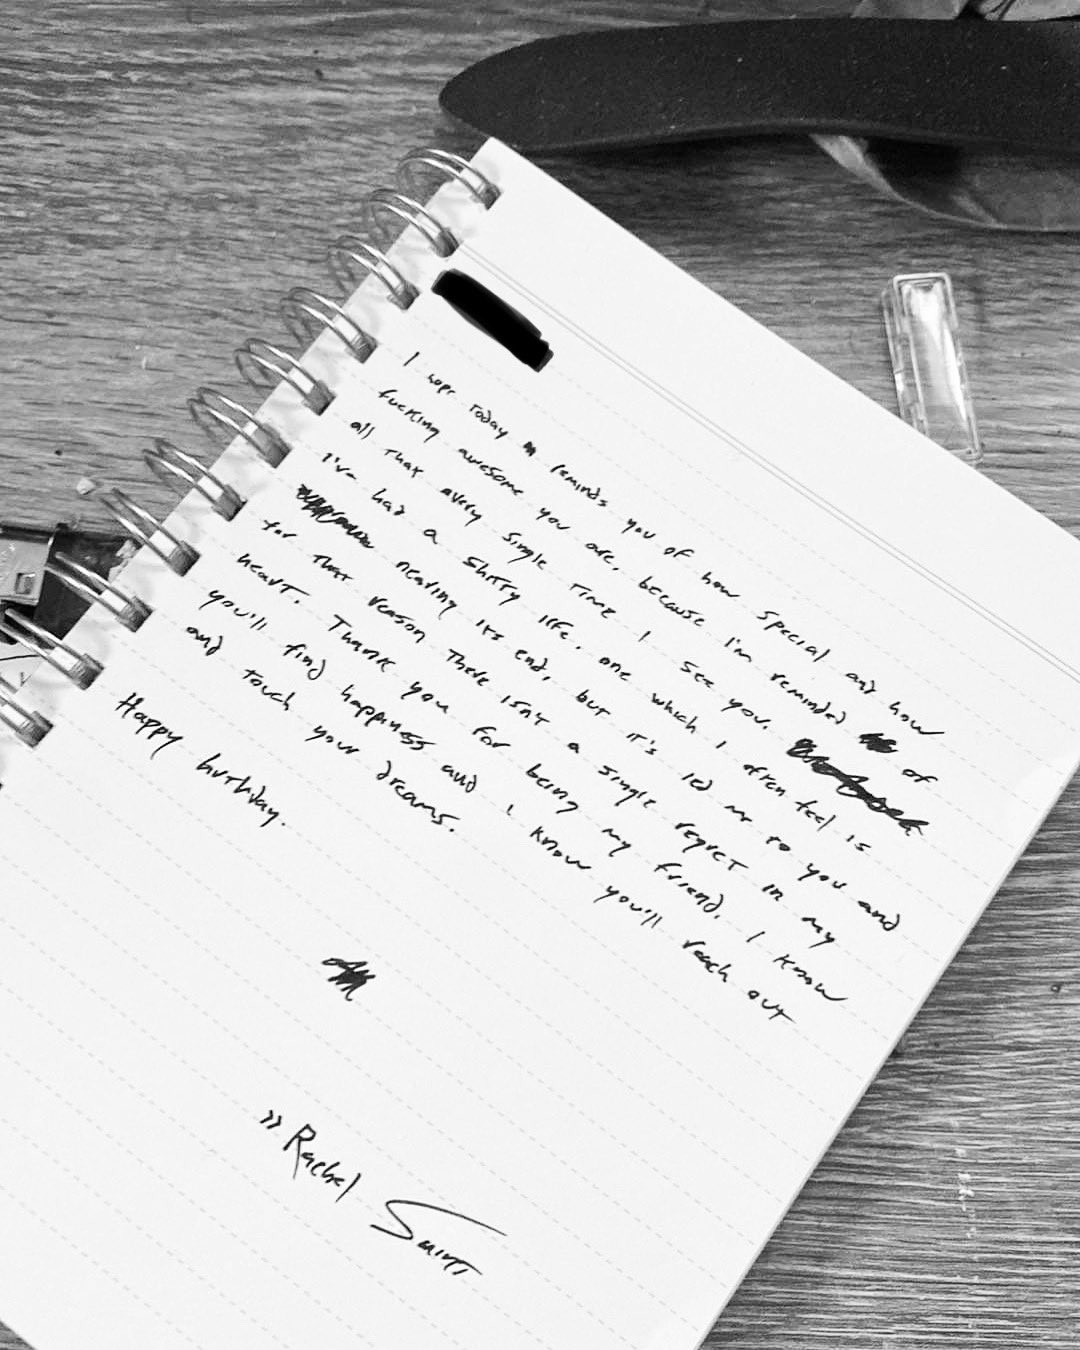 I hope today reminds you of how special and how
fucking awesome you are, because I'm reminded of
all that every single time I see you.
I've had a shitty life, one which I often feel is
nearing its end, but it's led me to you and
for that reason there isnt a single regret in my
heart. Thank you for being my friend. I know
you'll find happiness and I know you'll reach out
and touch your dreams.
Happy birthday.
>> Rachel Smith